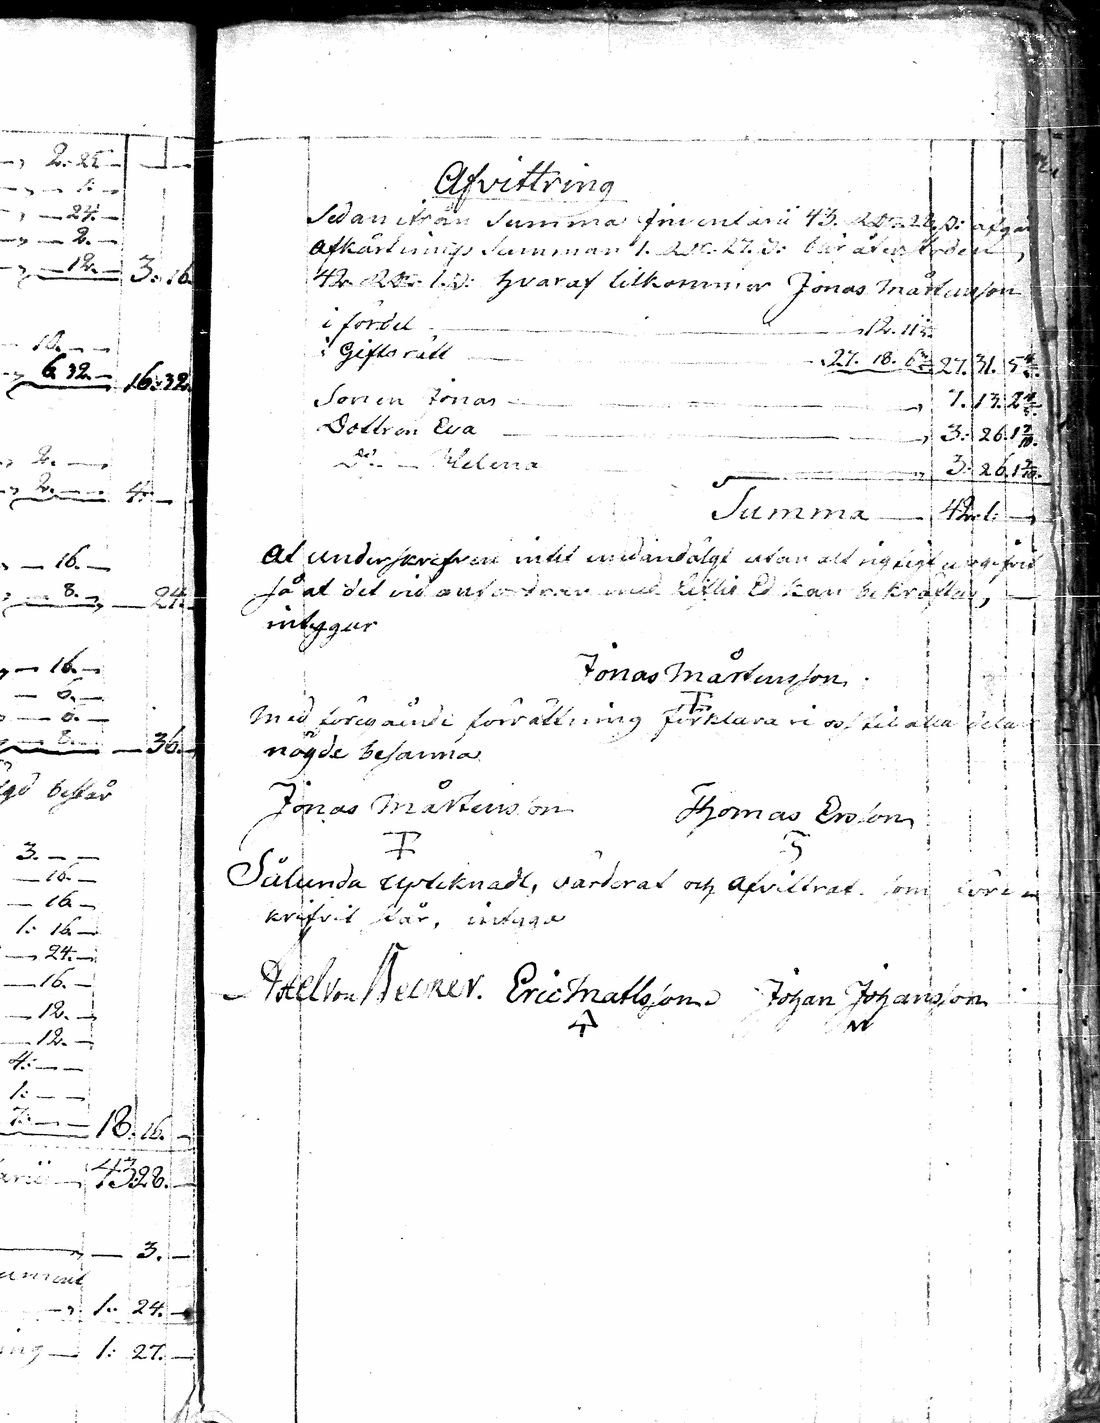 2. 25
1:
24.
2.
12. 3: 16
10.
6. 32. 16: 32.
2.
2. 4:
16.
8. 24.
16.
8. 36.
består
3.
16.
16.
1: 16
24.
16.
12.
12.
4:
1:
7: 18. 16.
43 28.
3.
1: 24.
1: 27.
Afvittring
Sedan ifrån Summa Inventarii 43. RDr. 28. s: afgår
afkårtnings Summan 1. RDr. 27. s: blir återstoden,
42 RDr. 1. s: hvaraf tilkommer Jonas Mårtensson
i fördel 12. 11
i Giftorätt 27. 18. 27. 31. 5
Sonen Jonas 7. 13. 2
Dottren Eva 3: 26. 1 7/10.
D:o Helena 3: 26. 1 7/10.
Summa 42. 1:
At underskrefven intet undandölgt utan alt rigtigt upgifvit
så at det vid anfordran med liflig Ed kan bekräftas,
intygar
Jonas Mårtensson.
Med föregående förrättning förklara vi oss til alla delar
nögde besanna
Jonas Mårtensson Thomas Ersson
Sålunda upteknadt, värderat och afvittrat som före
skrifvit står, intyga
Axel von Becker. Eric Mattsson Johan Johansson